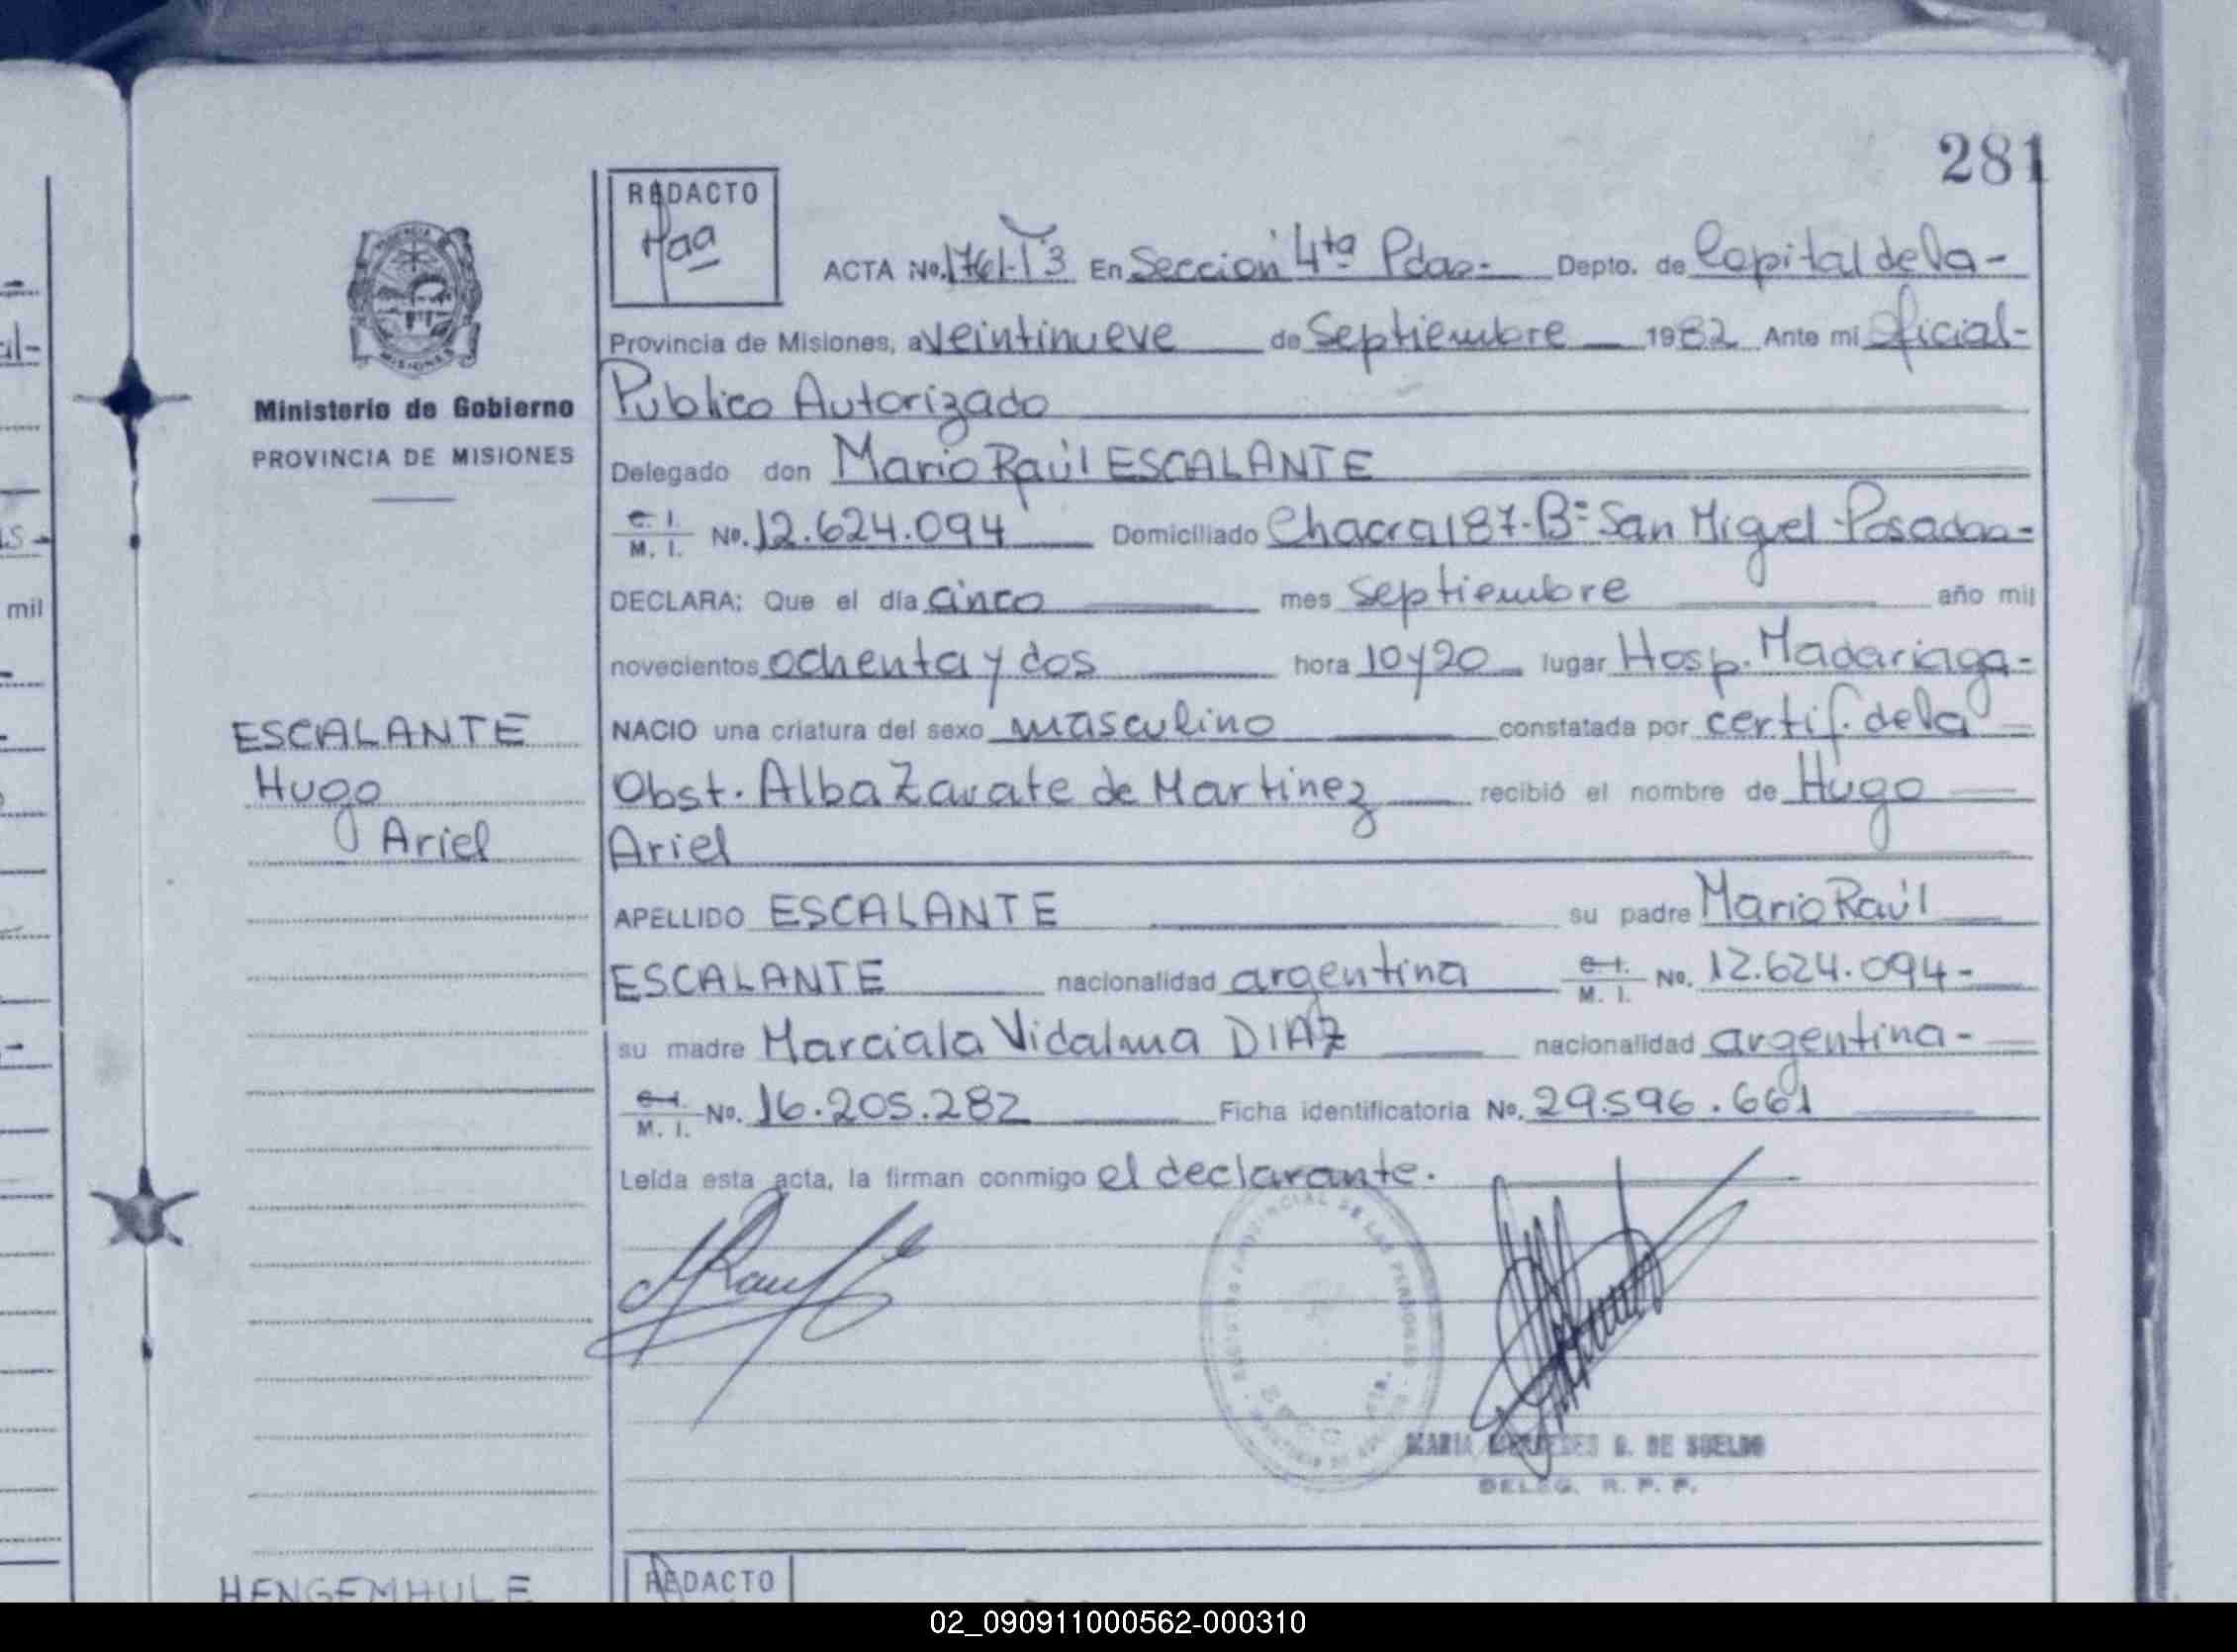 281
REDACTO
ACTA No. 1761-T3 En Sección 4ta Pdas.- Depto. de Capital de la-
Provincia de Misiones, a veintinueve de Septiembre 1982 Ante mi Oficial-
Publico Autorizado
Ministerio de Gobierno
PROVINCIA DE MISIONES
Delegado don Mario Raúl ESCALANTE
C. I. M. I. No. 12.624.094 Domiciliado Chacra 187-Bº San Miguel-Posadas-
DECLARA: Que el día cinco mes septiembre año mil
novecientos ochenta y dos hora 10y20 lugar Hosp. Madariaga-
NACIO una criatura del sexo masculino constatada por certif. de la
Obst. Alba Zarate de Martinez recibió el nombre de Hugo
Ariel
ESCALANTE
Hugo
Ariel
APELLIDO ESCALANTE su padre Mario Raúl
ESCALANTE nacionalidad argentina C. I. M. I. No. 12.624.094-
su madre Marciala Vidalma DIAZ nacionalidad argentina-
C. I. M. I. No. 16.205.282 Ficha identificatoria No. 29.596.661
Leída esta acta, la firman conmigo el declarante.
DE SUELDO
DELEG. R. P. P.
HENGEMHULE
REDACTO
mil
02_090911000562-000310